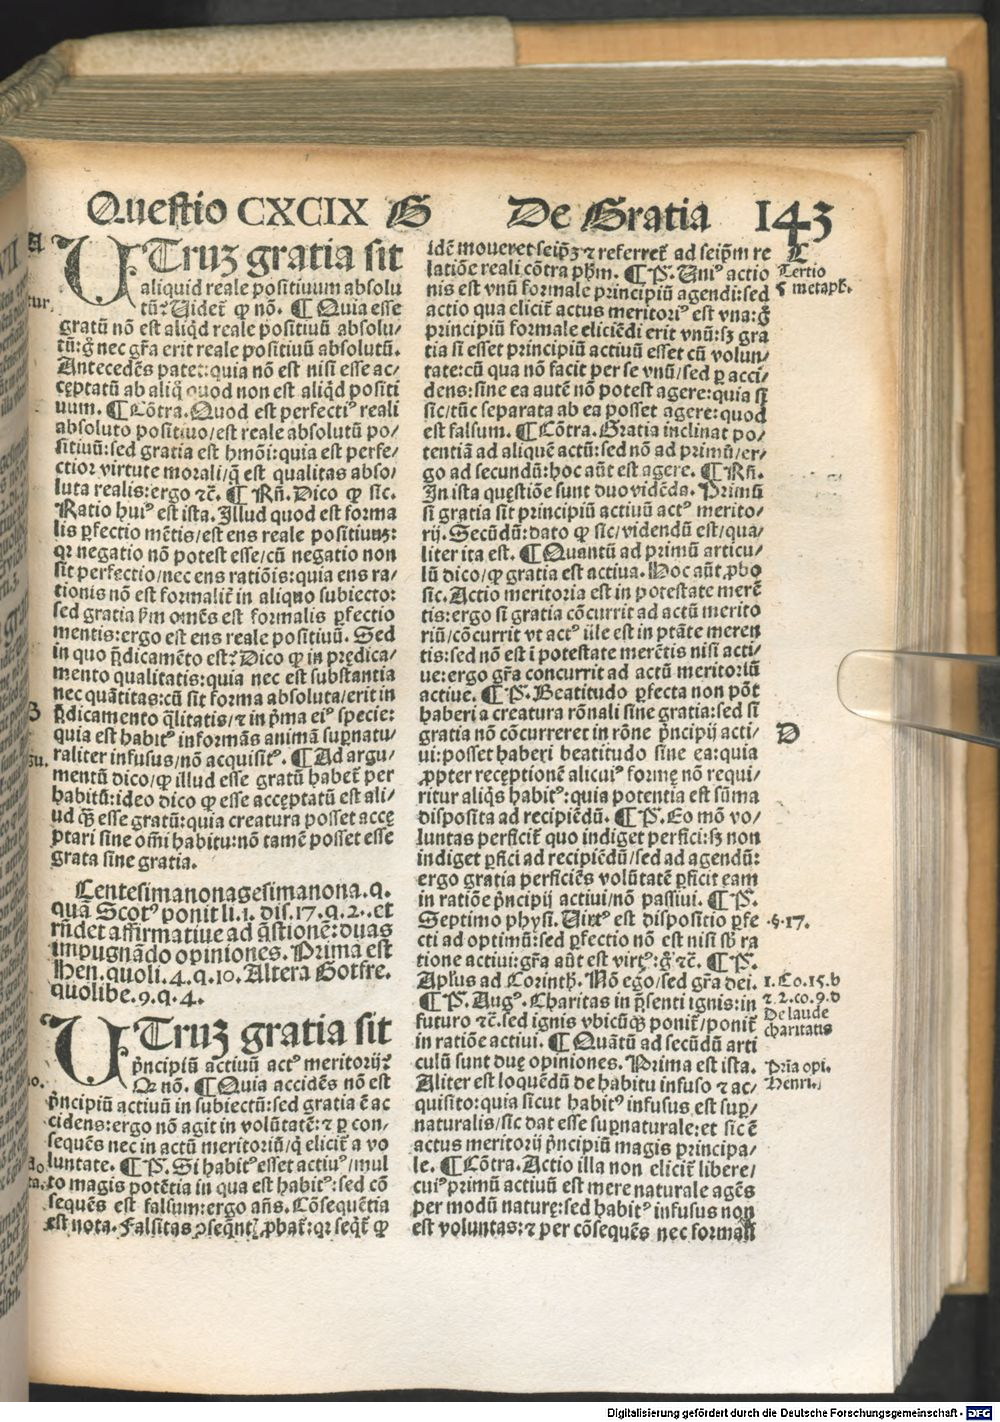 Questio CXCIX G De Gratia 143
A
UTruz gratia sit
aliquid reale positiuum absolu
tū? Videt̄ ꝙ nō. ¶ Quia esse
gratū nō est aliqd̄ reale positiuū absolu/
tū: ḡ nec gr̄a erit reale positiuū absolutū.
Antecedēs patet: quia nō est nisi esse ac/
ceptatū ab aliq̄ quod non est aliqd̄ positi
uum. ¶ Cōtra. Quod est perfectiꝰ reali
absoluto positiuo/est reale absolutū po/
sitiuū: sed gratia est hmōi: quia est perfe/
ctior virtute morali/q̄ est qualitas abso/
luta realis: ergo ⁊c̄. ¶ Rñ. Dico ꝙ sic.
Ratio huiꝰ est ista. Illud quod est forma
lis ꝑfectio mētis/est ens reale positiuuꝫ:
qꝛ negatio nō potest esse/cū negatio non
sit perfectio/nec ens ratiōis: quia ens ra/
tionis nō est formalit̄ in aliquo subiecto:
sed gratia ẜm omēs est formalis ꝑfectio
mentis: ergo est ens reale positiuū. Sed
in quo p̄dicamēto est? Dico ꝙ in predica/
mento qualitatis: quia nec est substantia
nec quātitas: cū sit forma absoluta/erit in
B
p̄dicamento q̄litatis/⁊ in p̄ma eiꝰ specie:
quia est habitꝰ informās animā suꝑnatu/
raliter infusus/nō acquisitꝰ. ¶ Ad argu/
mentū dico/ꝙ illud esse gratū habet̄ per
habitū: ideo dico ꝙ esse acceptatū est ali/
ud qꝫ esse gratū: quia creatura posset acce
ptari sine om̄i habitu: nō tamē posset esse
grata sine gratia.
Centesimanonagesimanona.q.
qua Scotꝰ ponit li.1. dis.17.q.2..et
rñdet affirmatiue ad q̄stionē: duas
impugnādo opiniones. Prima est
Hen.quoli.4.q.10. Altera Gotfre.
quolibe.9.q.4.
UTruz gratia sit
p̄ncipiū actiuū actꝰ meritorij?
Qꝛ nō. ¶ Quia accidēs nō est
p̄ncipiū actiuū in subiectū: sed gratia ē ac
cidens: ergo nō agit in volūtatē: ⁊ ꝑ con/
sequēs nec in actū meritoriū/q̄ elicit̄ a vo
luntate. ¶ Pͣ. Si habitꝰ esset actiuꝰ/mul
to magis potētia in qua est habitꝰ: sed cō
sequēs est falsum: ergo añs. Cōsequētia
est nota. Falsitas ꝯseqn̄tꝭ ꝓbat̄: qꝛ seqt̄ ꝙ
idē moueret seip̄ꝫ ⁊ referret̄ ad seip̄m re
latiōe reali cōtra ph̄m. ¶ Pͣ. Vniꝰ actio
nis est vnū formale principiū agendi: sed
actio qua elicit̄ actus meritoriꝰ est vna: ḡ
principiū formale eliciēdi erit vnū: sꝫ gra
tia si esset principiū actiuū esset cū volun/
tate: cū qua nō facit per se vnū/sed ꝑ acci/
dens: sine ea autē nō potest agere: quia si
sic/tūc separata ab ea posset agere: quod
est falsum. ¶ Cōtra. Gratia inclinat po/
tentiā ad aliquē actū: sed nō ad primū/er/
go ad secundū: hoc aūt est agere. ¶ Rñ.
In ista questiōe sunt duo vidēda. Primū
si gratia sit principiū actiuū actꝰ merito/
rij. Secūdū: dato ꝙ sic/videndū est/qua/
liter ita est. ¶ Quantū ad primū articu/
lū dico/ꝙ gratia est actiua. Hoc aūt ꝓbo
sic. Actio meritoria est in potestate merē
tis: ergo si gratia cōcurrit ad actū merito
riū/cōcurrit vt actꝰ ille est in ptāte meren
tis: sed nō est ī potestate merētis nisi acti/
ue: ergo gr̄a concurrit ad actū meritoriū
actiue. ¶ Pͣ. Beatitudo ꝑfecta non pōt
haberi a creatura rōnali sine gratia: sed si
gratia nō cōcurreret in rōne p̄ncipij acti/
ui: posset haberi beatitudo sine ea: quia
ꝓpter receptionē alicuiꝰ forme nō requi/
ritur aliqs̄ habitꝰ: quia potentia est sūma
disposita ad recipiēdū. ¶ Pͣ. Eo mō vo/
luntas perficit̄ quo indiget perfici: sꝫ non
indiget ꝑfici ad recipiēdū/sed ad agendū:
ergo gratia perficiēs volūtatē ꝑficit eam
in ratiōe p̄ncipij actiui/nō passiui. ¶ Pͣ.
Septimo physi. Virtꝰ est dispositio ꝑfe
cti ad optimū: sed ꝑfectio nō est nisi sub ra
tione actiui: gr̄a aūt est virtꝰ: ḡ ⁊c̄. ¶ Pͣ.
Apl̄us ad Corinth. Nō ego/sed gr̄a dei.
¶ Pͣ. Augꝰ. Charitas in p̄senti ignis: in
futuro ⁊c̄. sed ignis vbicūqꝫ ponit̄/ponit̄
in ratiōe actiui. ¶ Quātū ad secūdū arti
culū sunt due opiniones. Prima est ista.
Aliter est loquēdū de habitu infuso ⁊ ac/
quisito: quia sicut habitꝰ infusus est suꝑ/
naturalis/sic dat esse suꝑnaturale: et sic ē
actus meritorij p̄ncipiū magis principa/
le. ¶ Cōtra. Actio illa non elicit̄ libere/
cuiꝰ primū actiuū est mere naturale agēs
per modū nature: sed habitꝰ infusus non
est voluntas: ⁊ per cōsequēs nec formalr̄
C
Tertio
metaph.
D
.§.17.
1.Co.15.b
⁊ 2.co.9.d
De laude
charitatis
Pria opi.
Henri.
Digitalisierung gefördert durch die Deutsche Forschungsgemeinschaft - DFG